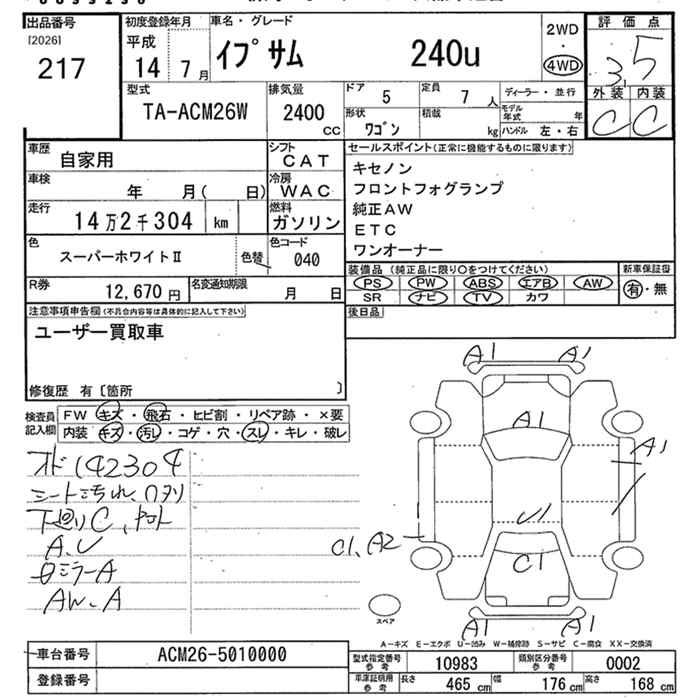 出品番号
[2026]
217
初度登録年月
平成
14年7月
車名・グレード
イプサム 240u
2WD
・
4WD
評価点
3.5
外装 内装
C C
型式
TA-ACM26W
排気量
2400
CC
ドア 5
定員 7人
形状
ワゴン
積載
kg
ディーラー・並行
モデル年式 年
ハンドル 左・右
車歴 自家用
シフト
CAT
車検 年 月( 日)
冷房
WAC
走行 14万2千304 km
燃料
ガソリン
色 スーパーホワイトⅡ
色替
色コード
040
R券 12,670円
名変通知期限
月 日
セールスポイント(正常に機能するものに限ります)
キセノン
フロントフォグランプ
純正AW
ETC
ワンオーナー
装備品 (純正品に限り○をつけてください)
新車保証書
PS PW ABS エアB AW
有・無
SR ナビ TV カワ
後日品
注意事項申告欄(不具合内容等は具体的に記入して下さい)
ユーザー買取車
修復歴 有〔箇所 〕
検査員記入欄
FW キズ・飛石・ヒビ割・リペア跡・×要
内装 キズ・汚レ・コゲ・穴・スレ・キレ・破レ
オド142304
シート汚れ、ロヌリ
下廻りC、ヤケト
A.U
ミラーA
AW.A
A1 A1
A1
A1
U1
C1、A2
C1
A1 A1
スペア
A-キズ E-エクボ U-凹み W-補修跡 S-サビ C-腐食 XX-交換済
車台番号 ACM26-5010000
登録番号
型式指定番号
参考
10983
類別区分番号
参考
0002
車庫証明用
参考
長さ 465 cm 幅 176 cm 高さ 168 cm